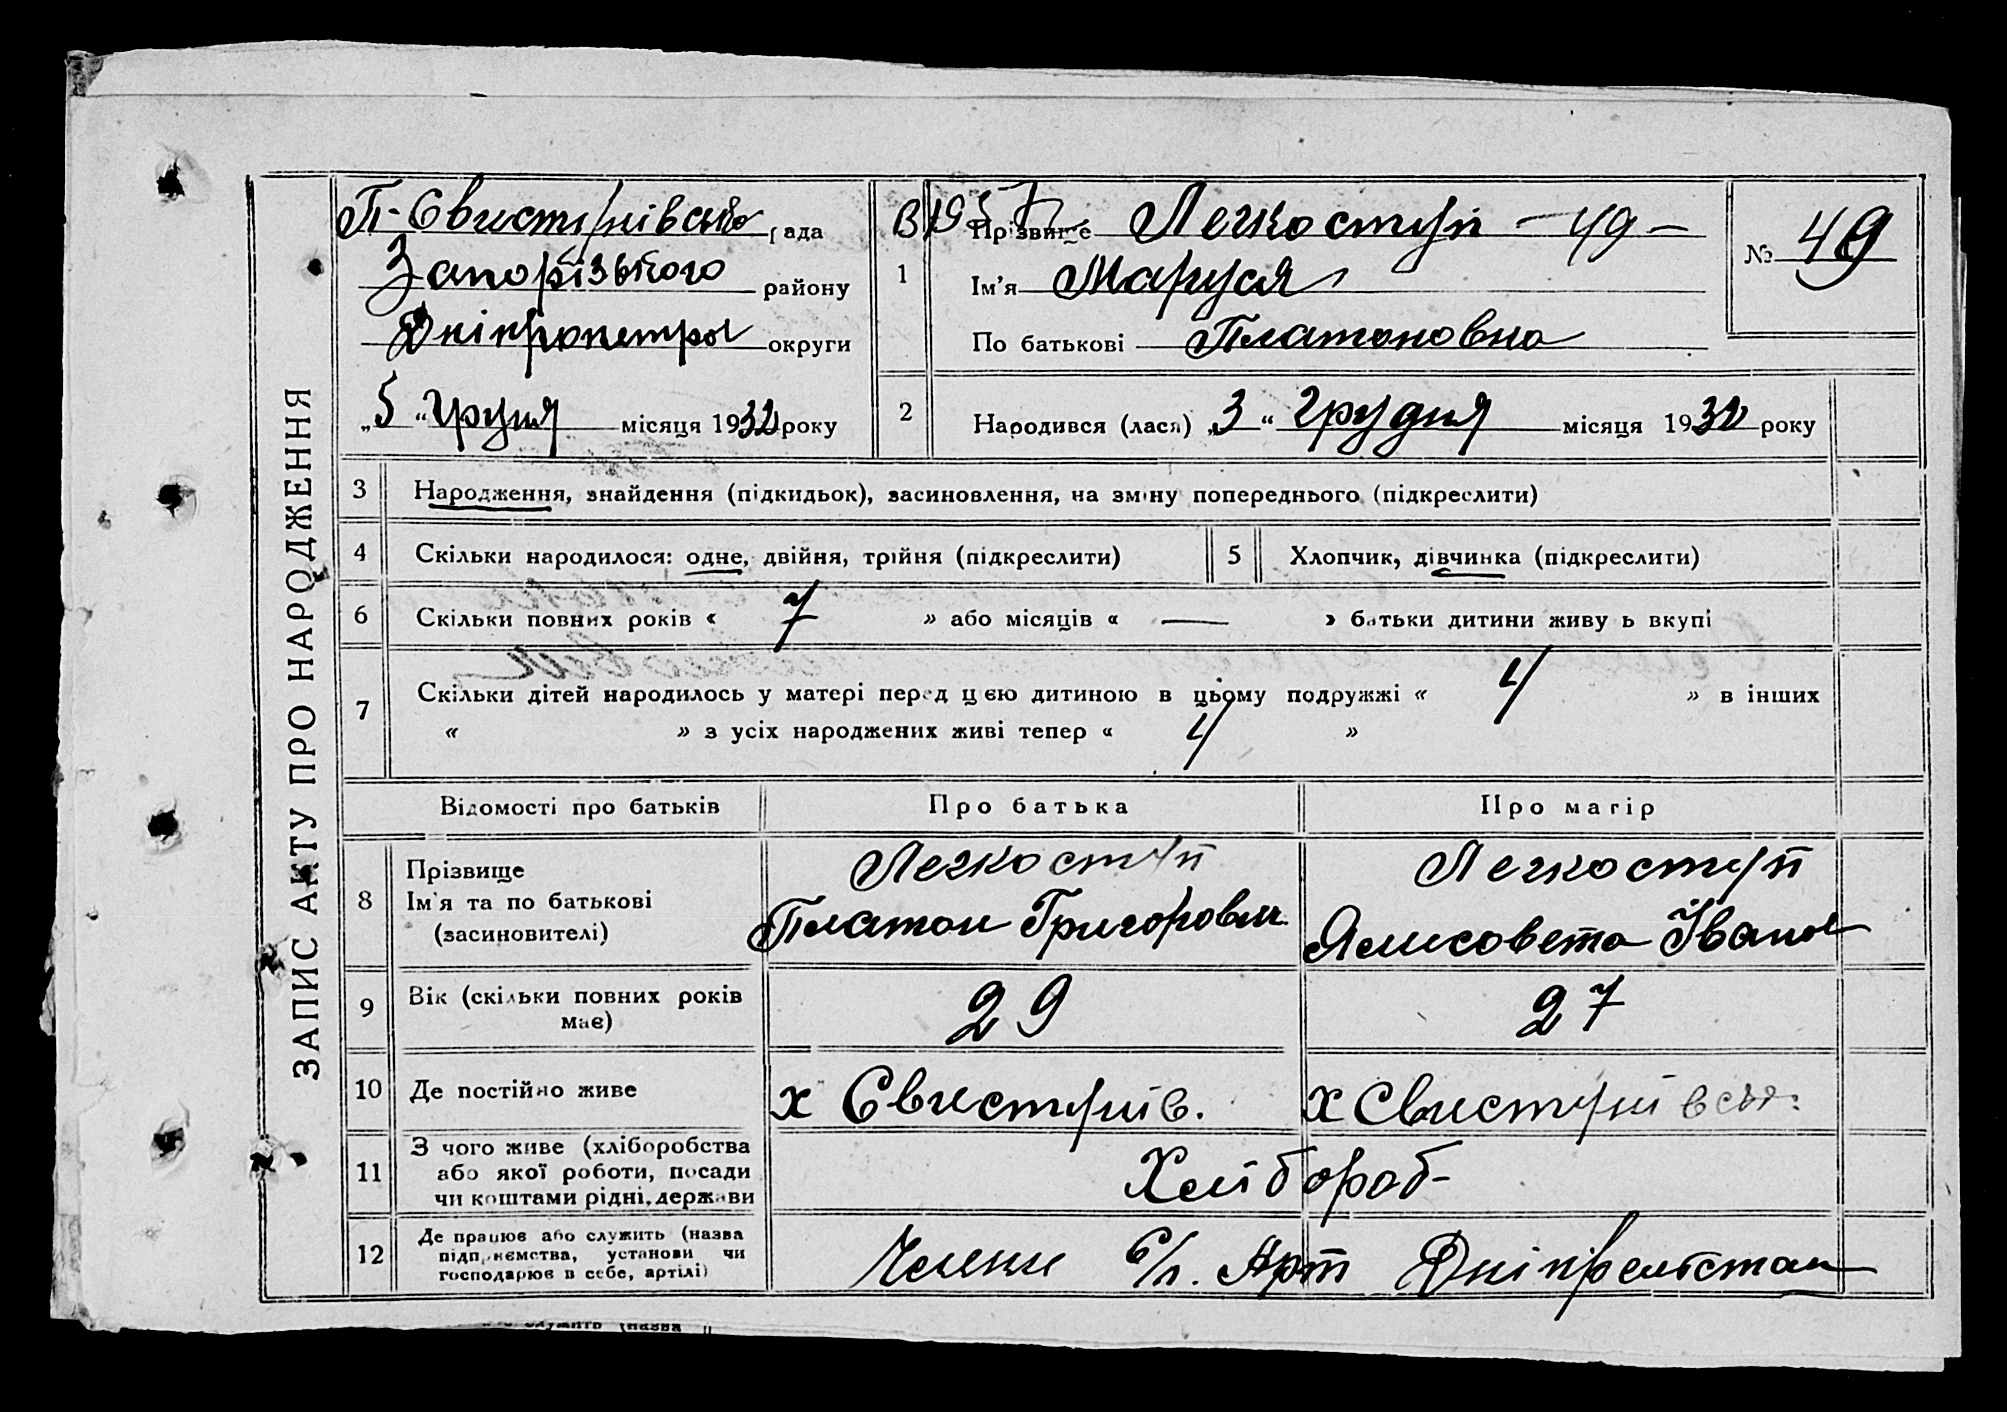 ЗАПИС АКТУ ПРО НАРОДЖЕННЯ
П-Свистунівсько рада
Запорізького району
Дніпропетров округи
„5“ Грудня місяця 1932 року
1 Прізвище Легкоступ -49-
Ім'я Маруся
По батькові Платоновна
№ 49
2 Народився (лася) „3“ Грудня місяця 1932 року
3 Народження, знайдення (підкидьок), засиновлення, на зміну попереднього (підкреслити)
4 Скільки народилося: одне, двійня, трійня (підкреслити)
5 Хлопчик, дівчинка (підкреслити)
6 Скільки повних років « 7 » або місяців « — » батьки дитини живуть вкупі
7 Скільки дітей народилось у матері перед цією дитиною в цьому подружжі « 4 » в інших
« » з усіх народжених живі тепер « 4 »
Відомості про батьків Про батька Про матір
8 Прізвище
Ім'я та по батькові
(засиновителі)
Легкоступ
Платон Григорович
Легкоступ
Ялисовета Іванов
9 Вік (скільки повних років
має)
29 27
10 Де постійно живе х Свистунів. х Свистунівськ:
11 З чого живе (хліборобства
або якої роботи, посади
чи коштами рідні, держави
Хлібороб-
12 Де працює або служить (назва
підприємства, установи чи
господарює в себе, артілі)
Члени с/г. Арт Дніпрельстан
служить (назва